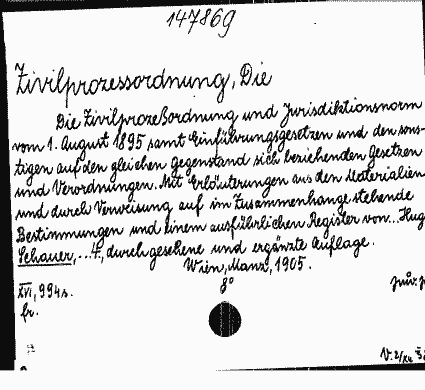 147869
Zivilprozessordnung, Die
Die Zivilprozeßordnung und Jurisdiktionsnorm
vom 1. August 1895 samt Einführungsgesetzen und den sons-
tigen auf den gleichen Gegenstand sich beziehenden Gesetzen
und Verordnungen. Mit Erläuterungen aus den Materialien
und durch Verweisung auf im Zusammenhange stehende
Bestimmungen und einem ausführlichen Register von... Hug
Schauer,... 4., durchgesehene und ergänzte Auflage.
Wien, Manz, 1905.
XVI, 994 s.
8°
br.